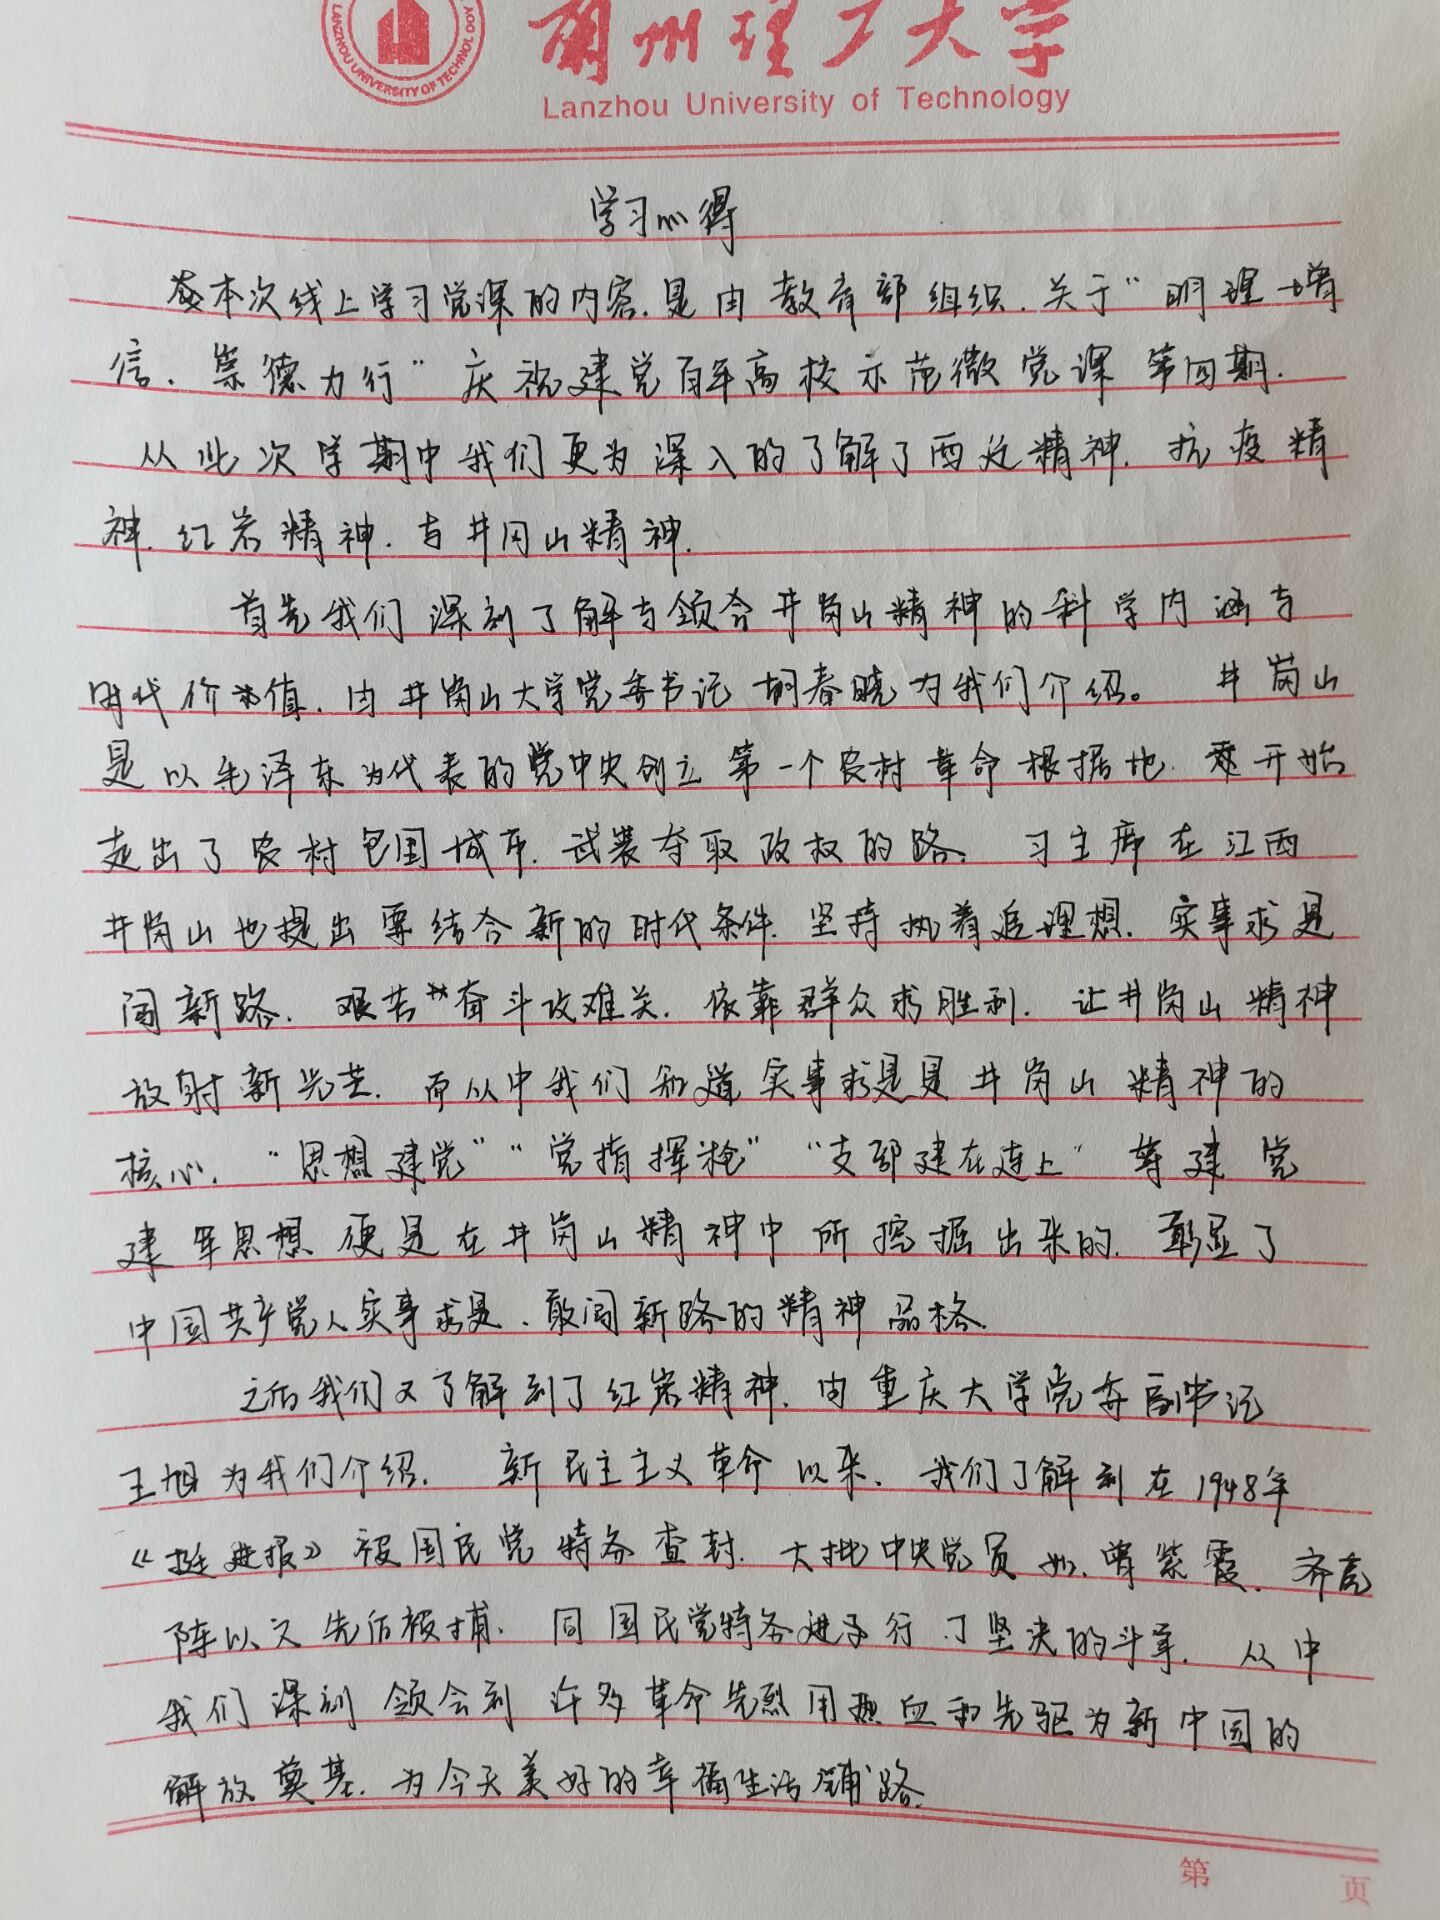 兰州理工大学
LANZHOU UNIVERSITY OF TECHNOLOGY
Lanzhou University of Technology
学习心得
本次线上学习党课的内容.是由教育部组织.关于“明理增
信.崇德力行”庆祝建党百年高校示范微党课第四期.
从此次学期中我们更为深入的了解了西迁精神.抗疫精
神.红岩精神.与井冈山精神.
首先我们深刻了解与领会井岗山精神的科学内涵与
时代价值.由井岗山大学党委书记胡春晓为我们介绍。井岗山
是以毛泽东为代表的党中央创立第一个农村革命根据地.开始
走出了农村包围城市.武装夺取政权的路.习主席在江西
井岗山也提出要结合新的时代条件.坚持执着追理想.实事求是
闯新路.艰苦奋斗攻难关.依靠群众求胜利.让井岗山精神
放射新光芒.而从中我们知道实事求是是井岗山精神的
核心.“思想建党”“党指挥枪”“支部建在连上”等建党
建军思想便是在井岗山精神中所挖掘出来的.彰显了
中国共产党人实事求是.敢闯新路的精神品格.
之后我们又了解到了红岩精神.由重庆大学党委副书记
王旭为我们介绍.新民主主义革命以来.我们了解到在1948年
《挺进报》被国民党特务查封.大批中央党员如.曾紫霞.齐亮
陈以文先后被捕.同国民党特务进行了坚决的斗争.从中
我们深刻领会到许多革命先烈用热血和先驱为新中国的
解放奠基.为今天美好的幸福生活铺路.
第 页